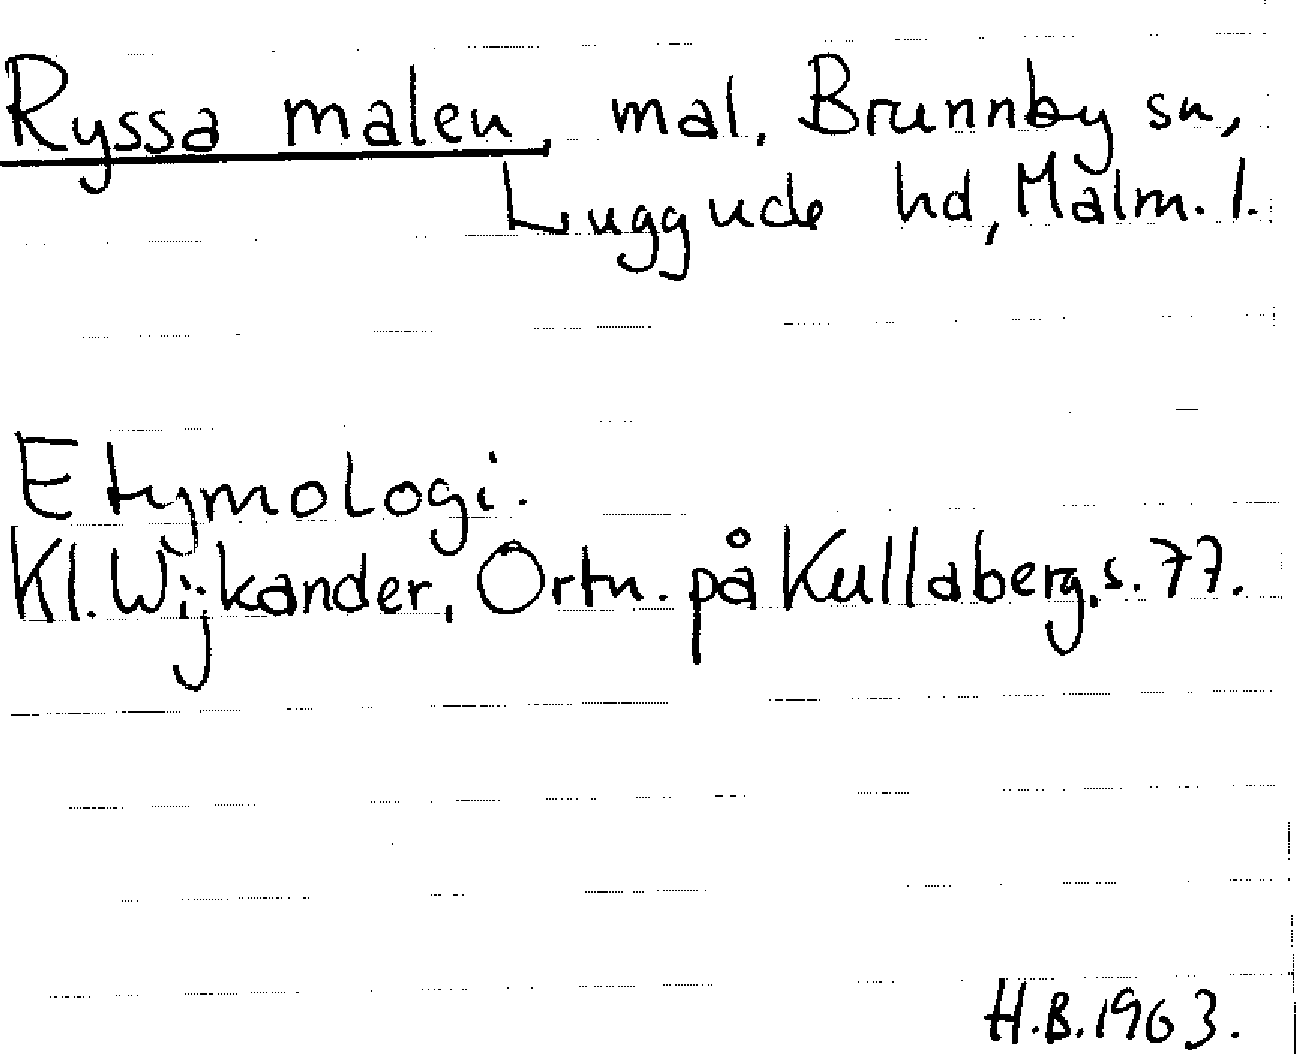 Ryssa malen, mal, Brunnby sn,
Luggude hd, Malm. l.
Etymologi.
Kl. Wijkander, Ortn. på Kullaberg, s. 77.
H.B. 1963.